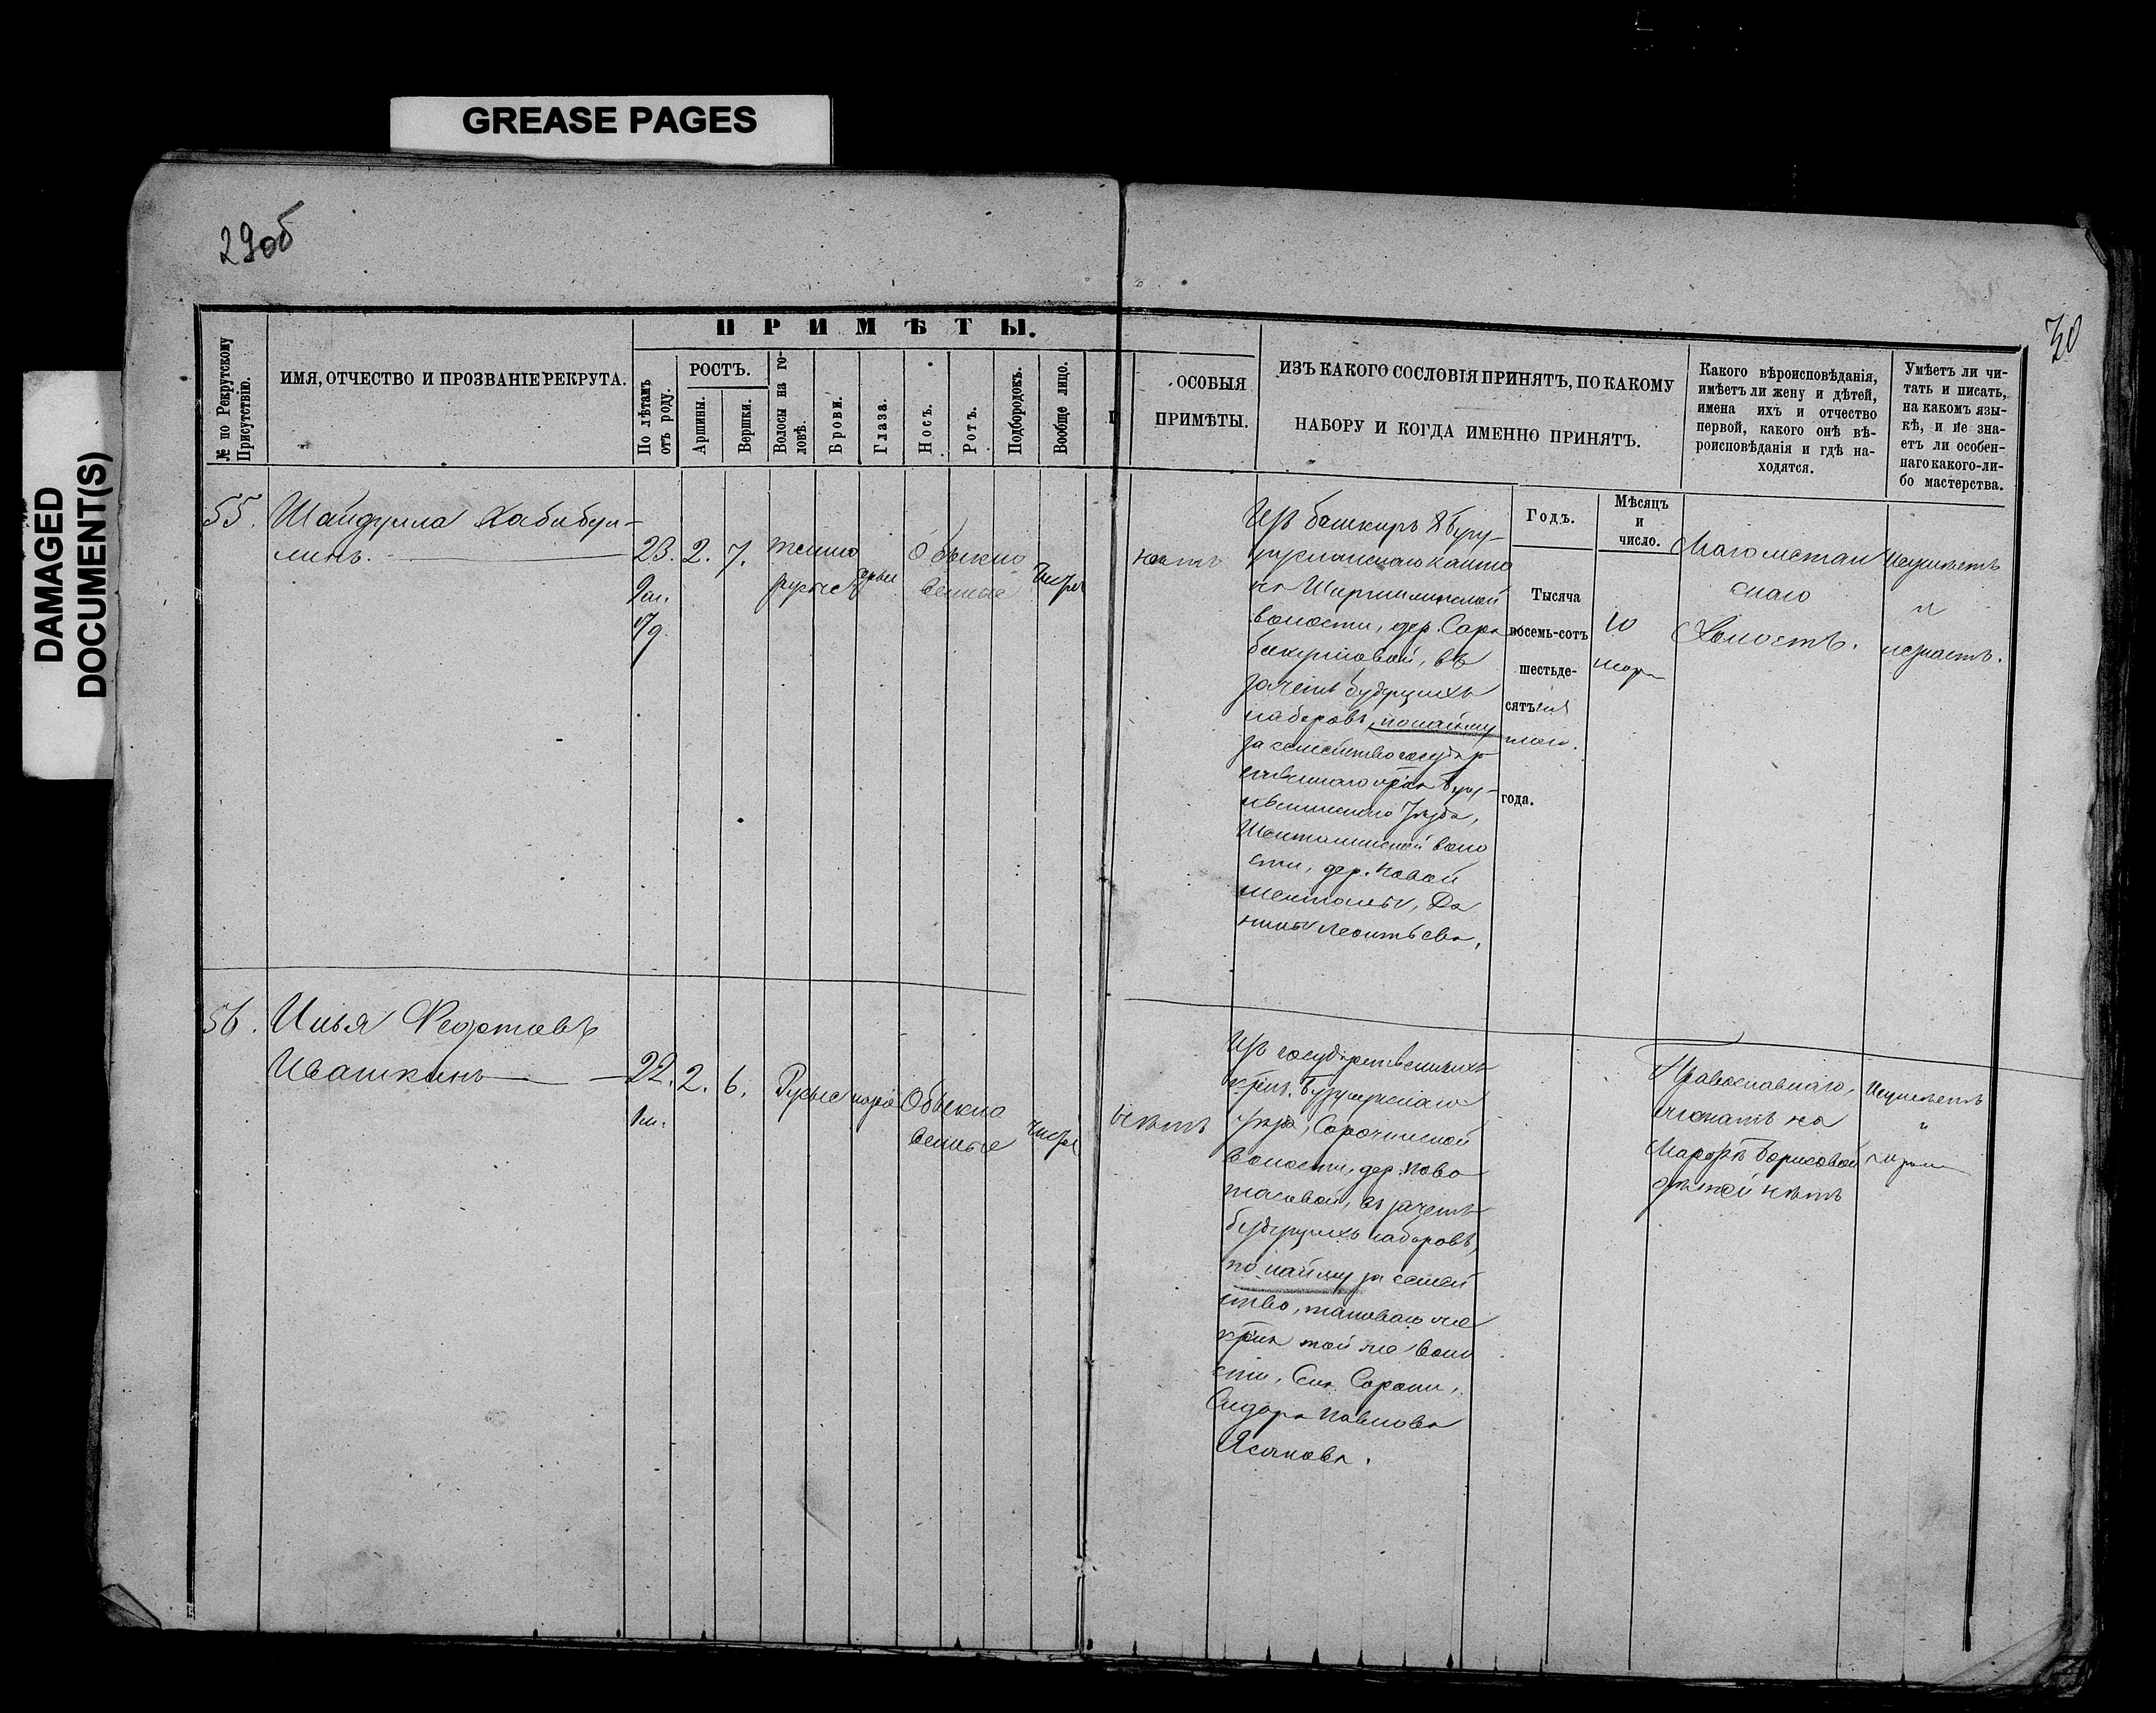 GREASE PAGES
DAMAGED
DOCUMENT(S)
29об
30
№ по Рекрутскому
Присутствію.
ИМЯ, ОТЧЕСТВО И ПРОЗВАНІЕ РЕКРУТА.
ПРИМѢТЫ.
По лѣтамъ
отъ роду.
РОСТЪ.
Аршины.
Вершки.
Волосы на го-
ловѣ.
Брови.
Глаза.
Носъ.
Ротъ.
Подбородокъ.
Вообще лицо.
ОСОБЫЯ
ПРИМѢТЫ.
ИЗЪ КАКОГО СОСЛОВІЯ ПРИНЯТЪ, ПО КАКОМУ
НАБОРУ И КОГДА ИМЕННО ПРИНЯТЪ.
Какого вѣроисповѣданія,
имѣетъ ли жену и дѣтей,
имена ихъ и отчество
первой, какого онѣ вѣ-
роисповѣданія и гдѣ на-
ходятся.
Умѣетъ ли чи-
тать и писать,
на какомъ язы-
кѣ, и не зна-
етъ ли особен-
наго какого-ли-
бо мастерства.
55.
Шайдулла Хабибул-
линъ.
23.
2.
7.
темно
русые
сѣрые
Обыкно
венные
чистое
нѣтъ
Изъ башкиръ 8 Бугу-
русланскаго канто
на
волости, дер. Сара
въ
зачетъ будущихъ
наборовъ, по найму
за семейство государ
ственнаго кр̃на Бугу-
Уѣзда,
Шенталинской воло
сти, дер. Новой
Шенталы, Да
нилы Леонтьева.
Годъ.
Тысяча
восемь-сотъ
шестьде-
сятъ
года.
Мѣсяцъ
и
число.
10
марта
Магометан
скаго
Холостъ.
Неумѣетъ
и
незнаетъ.
56.
Илья
Ивашкинъ
22.
2.
6.
Русые
каріе
Обыкно
венные
чистое
Нѣтъ
Изъ государственныхъ
крест. Бузулукскаго
Уѣзда, Сорочинской
волости, дер. Ново
въ зачетъ
будущихъ наборовъ,
по найму за семей
ство, таковаго же
кр̃на той же воло
сти,
Сидора Павлова
Православнаго,
женатъ на
Марѳѣ Борисовой
дѣтей нѣтъ
Неумѣетъ